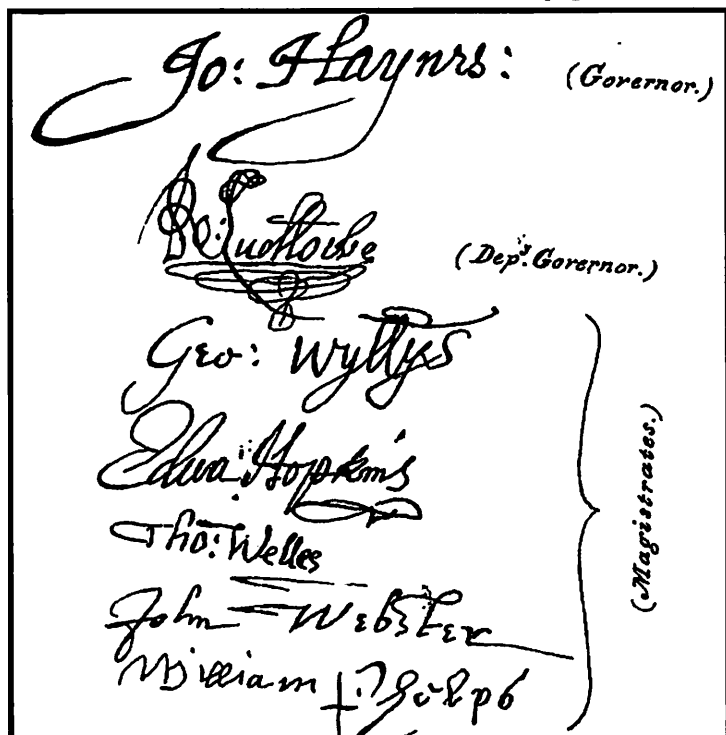 Jo: Haynes: (Governor.)
Ro: Ludlowe (Dep.ᵗ Governor.)
Geo: Wyllys
Edwa: Hopkins
Tho: Welles
John Webster
William Phelps
(Magistrates.)